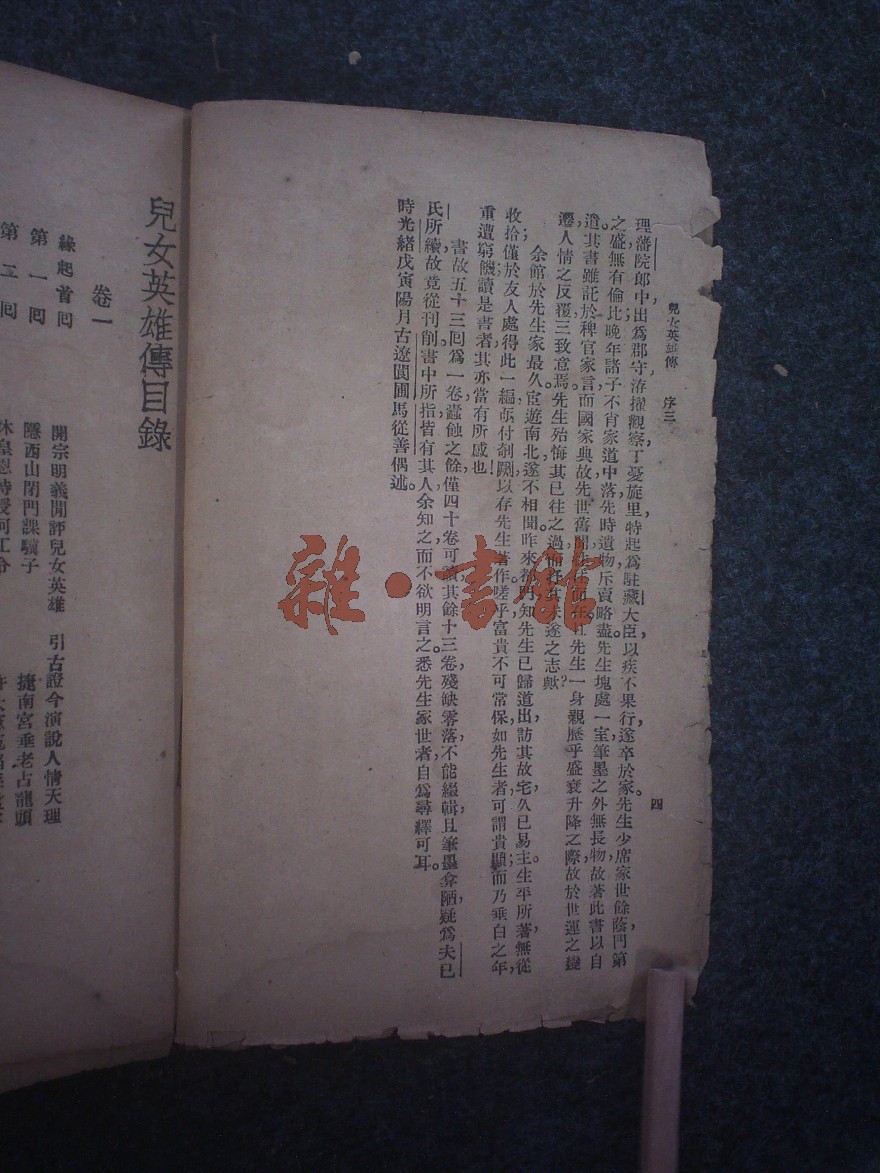 兒女英雄傳 序三
四
理藩院郎中出爲郡守洊擢觀察丁憂旋里，特起爲駐藏大臣，以疾不果行，遂卒於家。先生少席家世餘蔭門第
之盛無有倫比晚年諸子不肖家道中落先時遺物斥賣略盡。先生塊處一室筆墨之外無長物故著此書以自
遣。其書雖託於稗官家言而國家典故先世舊聞 先生一身親歷乎盛衰升降之際故於世運之變
遷，人情之反覆三致意焉。先生殆悔其已往之過 未遂之志歟？
余館於先生家最久。宦遊南北遂不相聞。昨來都門，知先生已歸道山，訪其故宅，久已易主。生平所著，無從
收拾僅於友人處得此一編，亟付剞劂以存先生著作。嗟乎富貴不可常保，如先生者可謂貴顯；而乃垂白之年，
重遭窮餓讀是書者其亦當有所感也！
書故五十三回爲一卷蠹蝕之餘，僅四十卷可讀其餘十三卷殘缺零落不能綴輯且筆墨弇陋，疑爲夫己
氏所續故竟從刊削書中所指皆有其人余知之而不欲明言之。悉先生家世者自爲尋釋可耳。
時光緒戊寅陽月古遼閬圃馬從善偶述。
兒女英雄傳目錄
卷一
緣起首回 開宗明義閒評兒女英雄 引古證今演說人情天理
第一回 隱西山閉門課驥子 捷南宮垂老占龍頭
第二回
雜·書館